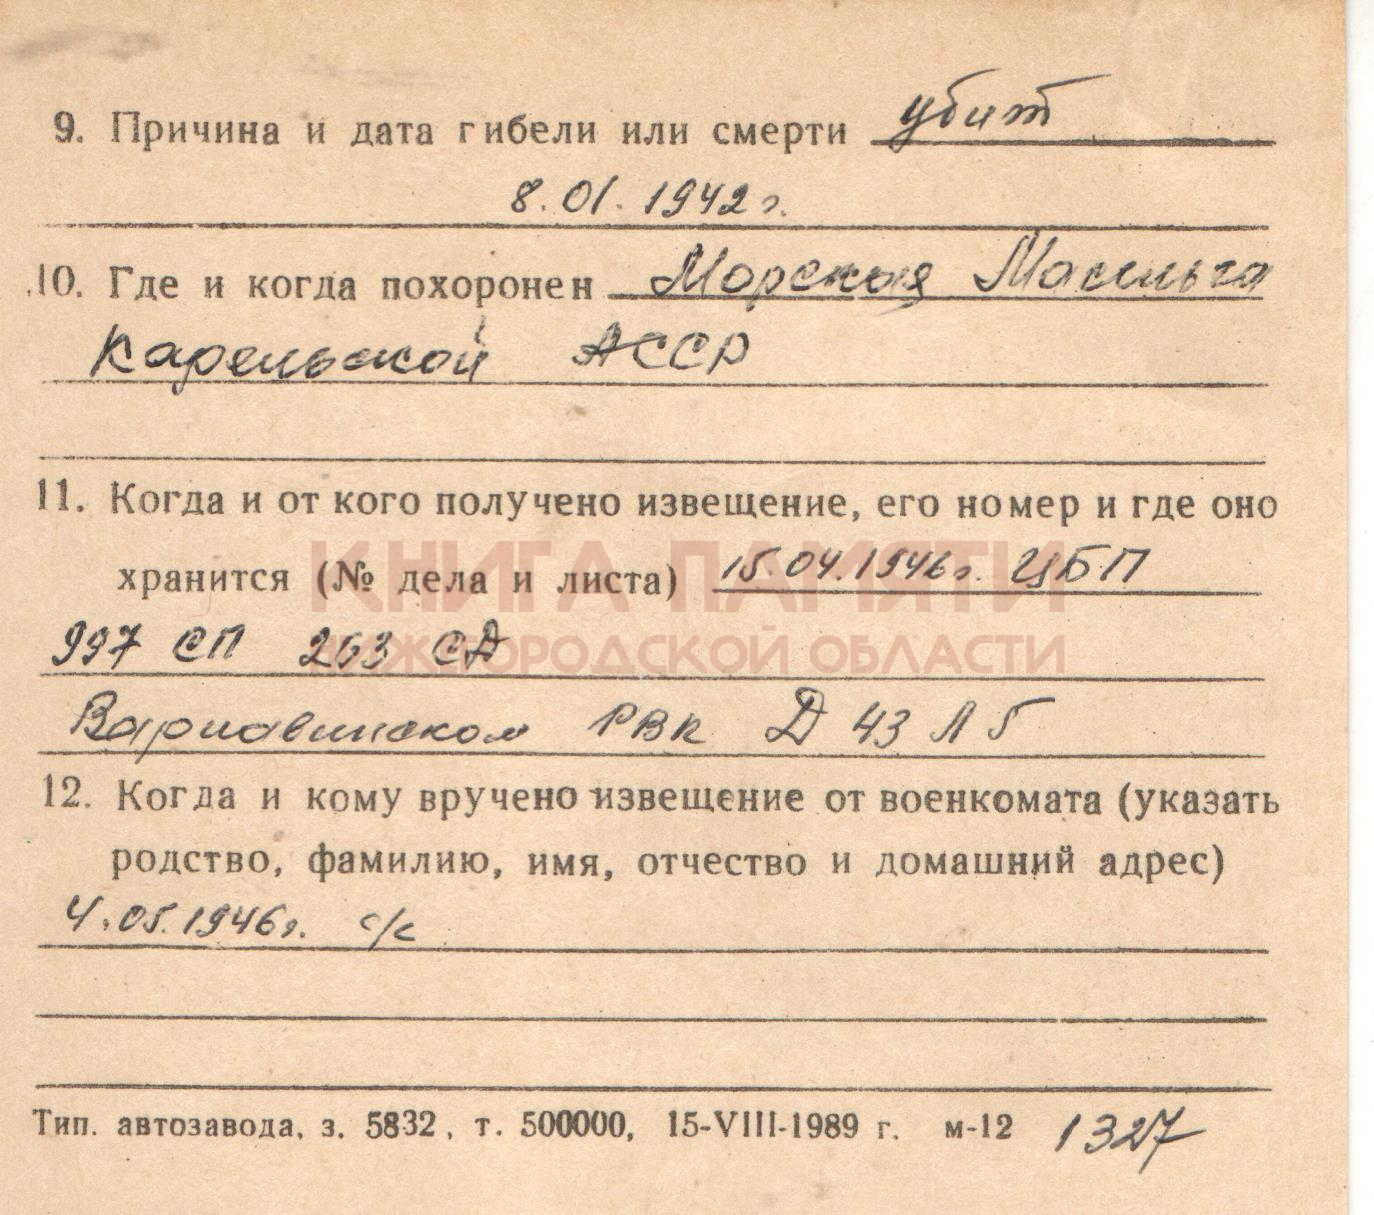 9. Причина и дата гибели или смерти убит
8.01.1942г.
10. Где и когда похоронен Морская Масельга
Карельской АССР
11. Когда и от кого получено извещение, его номер и где оно
хранится (№ дела и листа) 15.04.1946г. ЦБП
КНИГА ПАМЯТИ
997 СП 263 СД
НИЖЕГОРОДСКОЙ ОБЛАСТИ
Варнавинском РВК Д 43 Л 5
12. Когда и кому вручено извещение от военкомата (указать
родство, фамилию, имя, отчество и домашний адрес)
4.05.1946г. с/с
Тип. автозавода, з. 5832, т. 500000, 15-VIII-1989 г. м-12 1327